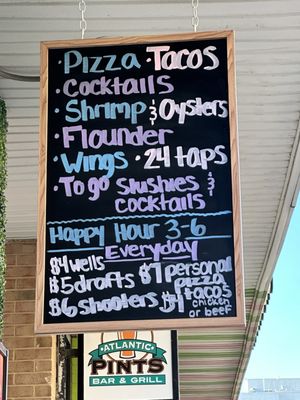 · Pizza · Tacos
· Cocktails
· Shrimp & Oysters
· Flounder
· Wings · 24 taps
· To go slushies &
cocktails
Happy Hour 3-6
Everyday
$4 wells
$5 drafts
$6 shooters
$7 personal
pizza
$4 tacos
chicken
or beef
ATLANTIC
PINTS
BAR & GRILL